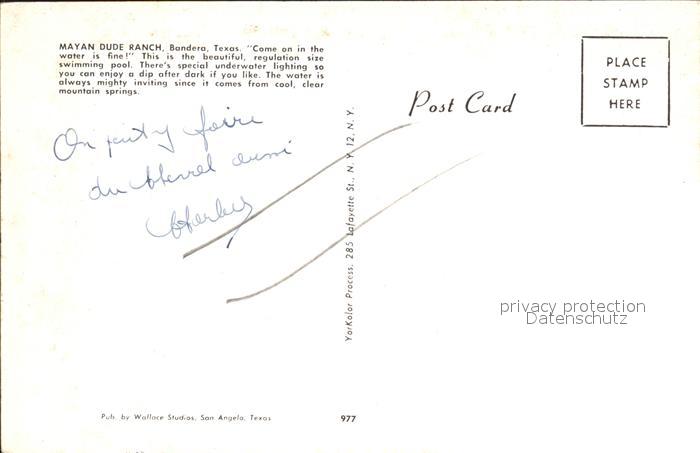 MAYAN DUDE RANCH, Bandera, Texas. "Come on in the
water is fine!" This is the beautiful, regulation size
swimming pool. There's special underwater lighting so
you can enjoy a dip after dark if you like. The water is
always mighty inviting since it comes from cool, clear
mountain springs.
On peut y faire
du
Post Card
PLACE
STAMP
HERE
YorKolor Process, 285 Lafayette St., N. Y. 12, N. Y.
privacy protection
Datenschutz
Pub. by Wallace Studios, San Angelo, Texas
977